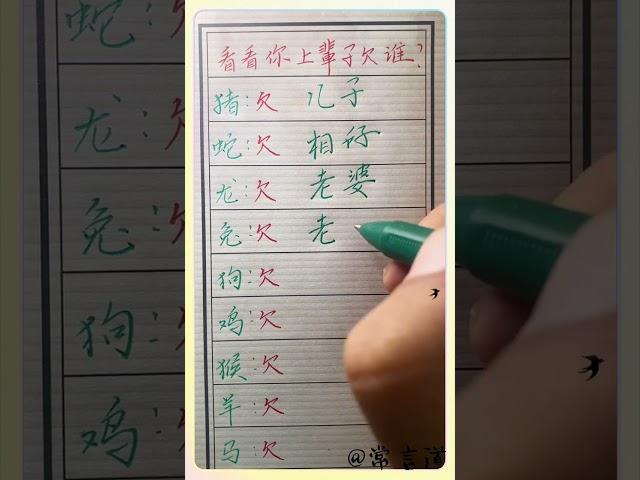 看看你上辈子欠谁?
猪:欠 儿子
蛇:欠 相好
龙:欠 老婆
兔:欠 老
狗:欠
鸡:欠
猴:欠
羊:欠
马:欠
@常言道